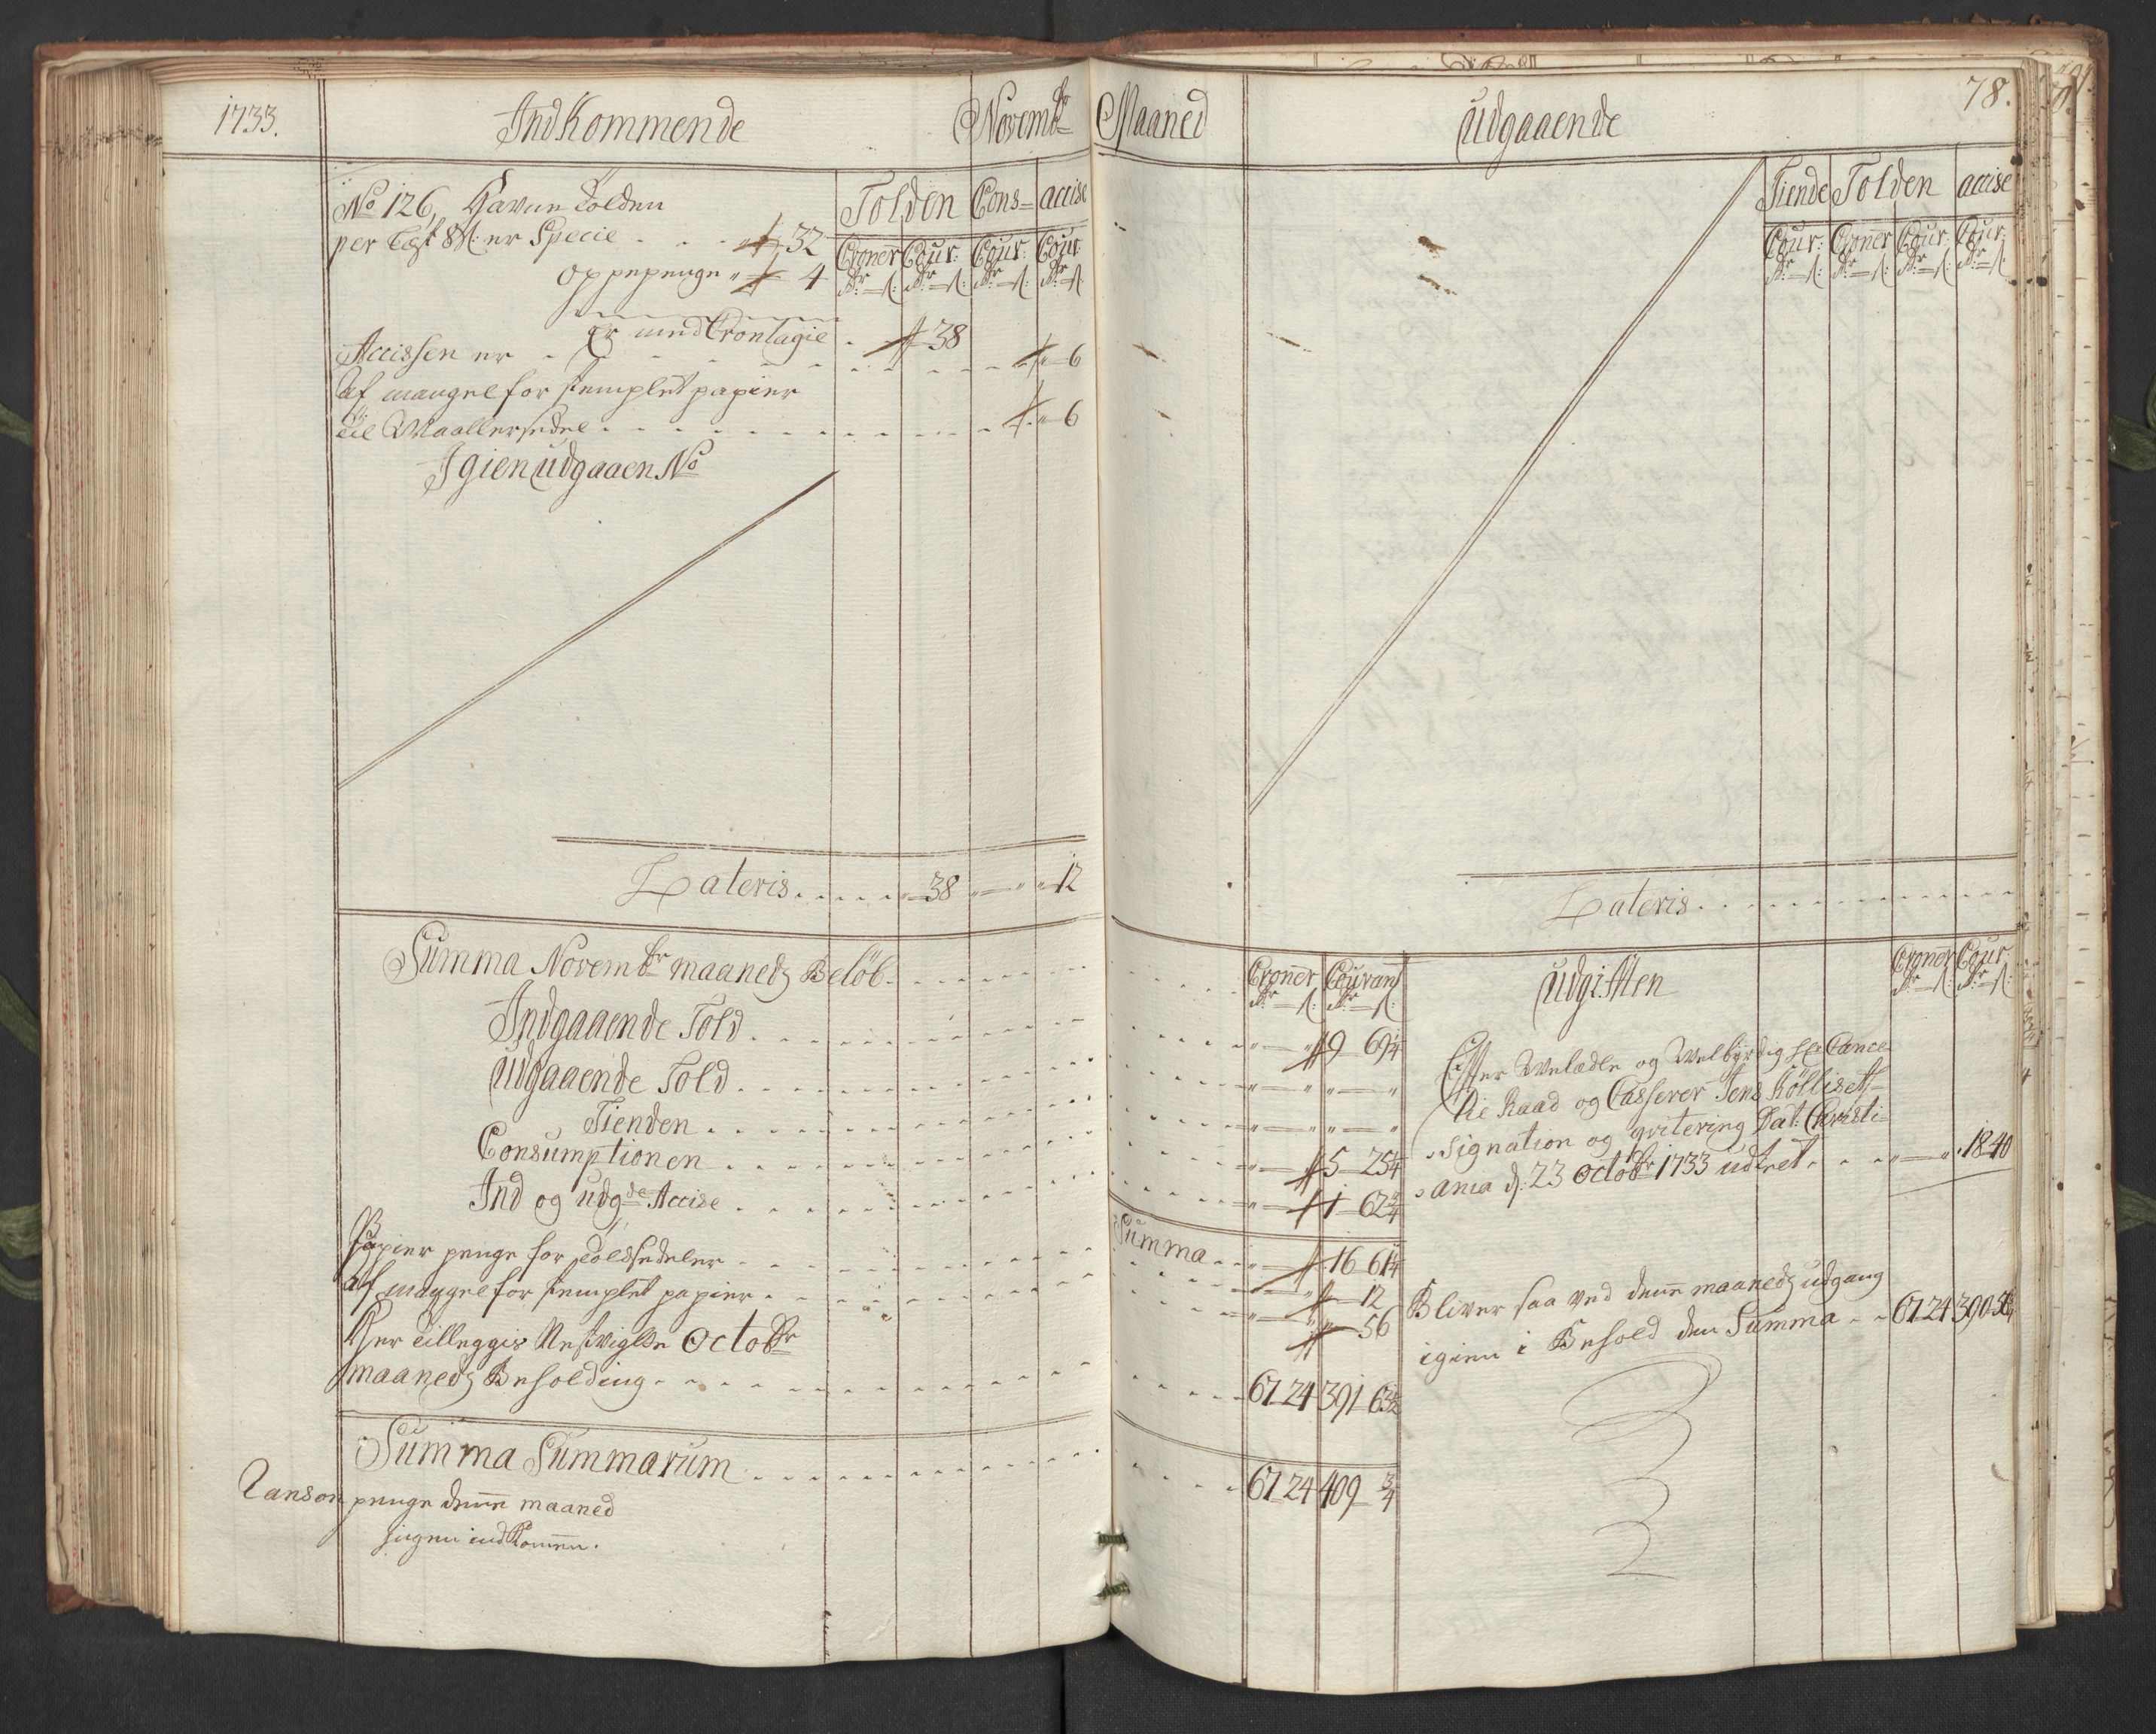 1733.
IndKommende
Novembr
Maaned
Udgaaende
78.
No 126, Havne Tolden
per Lest 8 s: er Specie 32
oppepenge 4
Er med Cronlagie 38
Accissen er 6
Af mangel for stemplet papier
til Maallersedel 6
Igien Udgaaen No
Tolden Cons- accise
Croner Cour: Cour: Cour:
Lateris 38 12
Tiende Tolden accise
Cour: Croner Cour: Cour:
Lateris
Summa Novembr maaneds Beløb
Croner Courant
Indgaaende Told 9 69 1/4
Udgaaende Told
Tienden
Consumptionen 5 25 1/4
Ind og udgde Accise 1 62 3/4
Summa 16 61 1/4
Papier penge for Toldsedeler 12
Af mangel for stemplet papier 56
Her tillegges Octobr
maaneds Beholding 67 24 391 63 1/2
Summa Summarum 67 24 409 3/4
Ranson penge denne maaned
ingen indkommen.
Udgiften
Croner Cour:
Efter Welædle og Welbyrdig Hr Cance
lie Raad og Casserer Jens
signation og qvitering Dat: Christi-
ania d: 23 Octobr 1733 udtret 18 40
Bliver saa ved denne maaneds udgang
igien i Behold den Summa 67 24 390